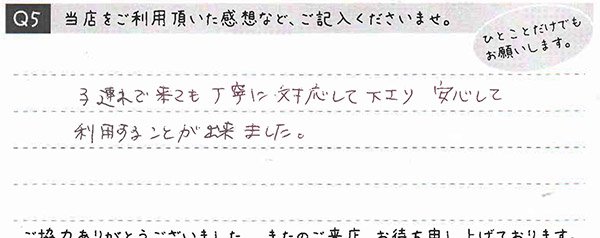 Q5 当店をご利用頂いた感想など、ご記入くださいませ。
ひとことだけでも
お願いします。
子連れで来ても丁寧に対応して下エリ 安心して
利用することが出来ました。
ご協力ありがとうございました。またのご来店、お待ち申し上げております。